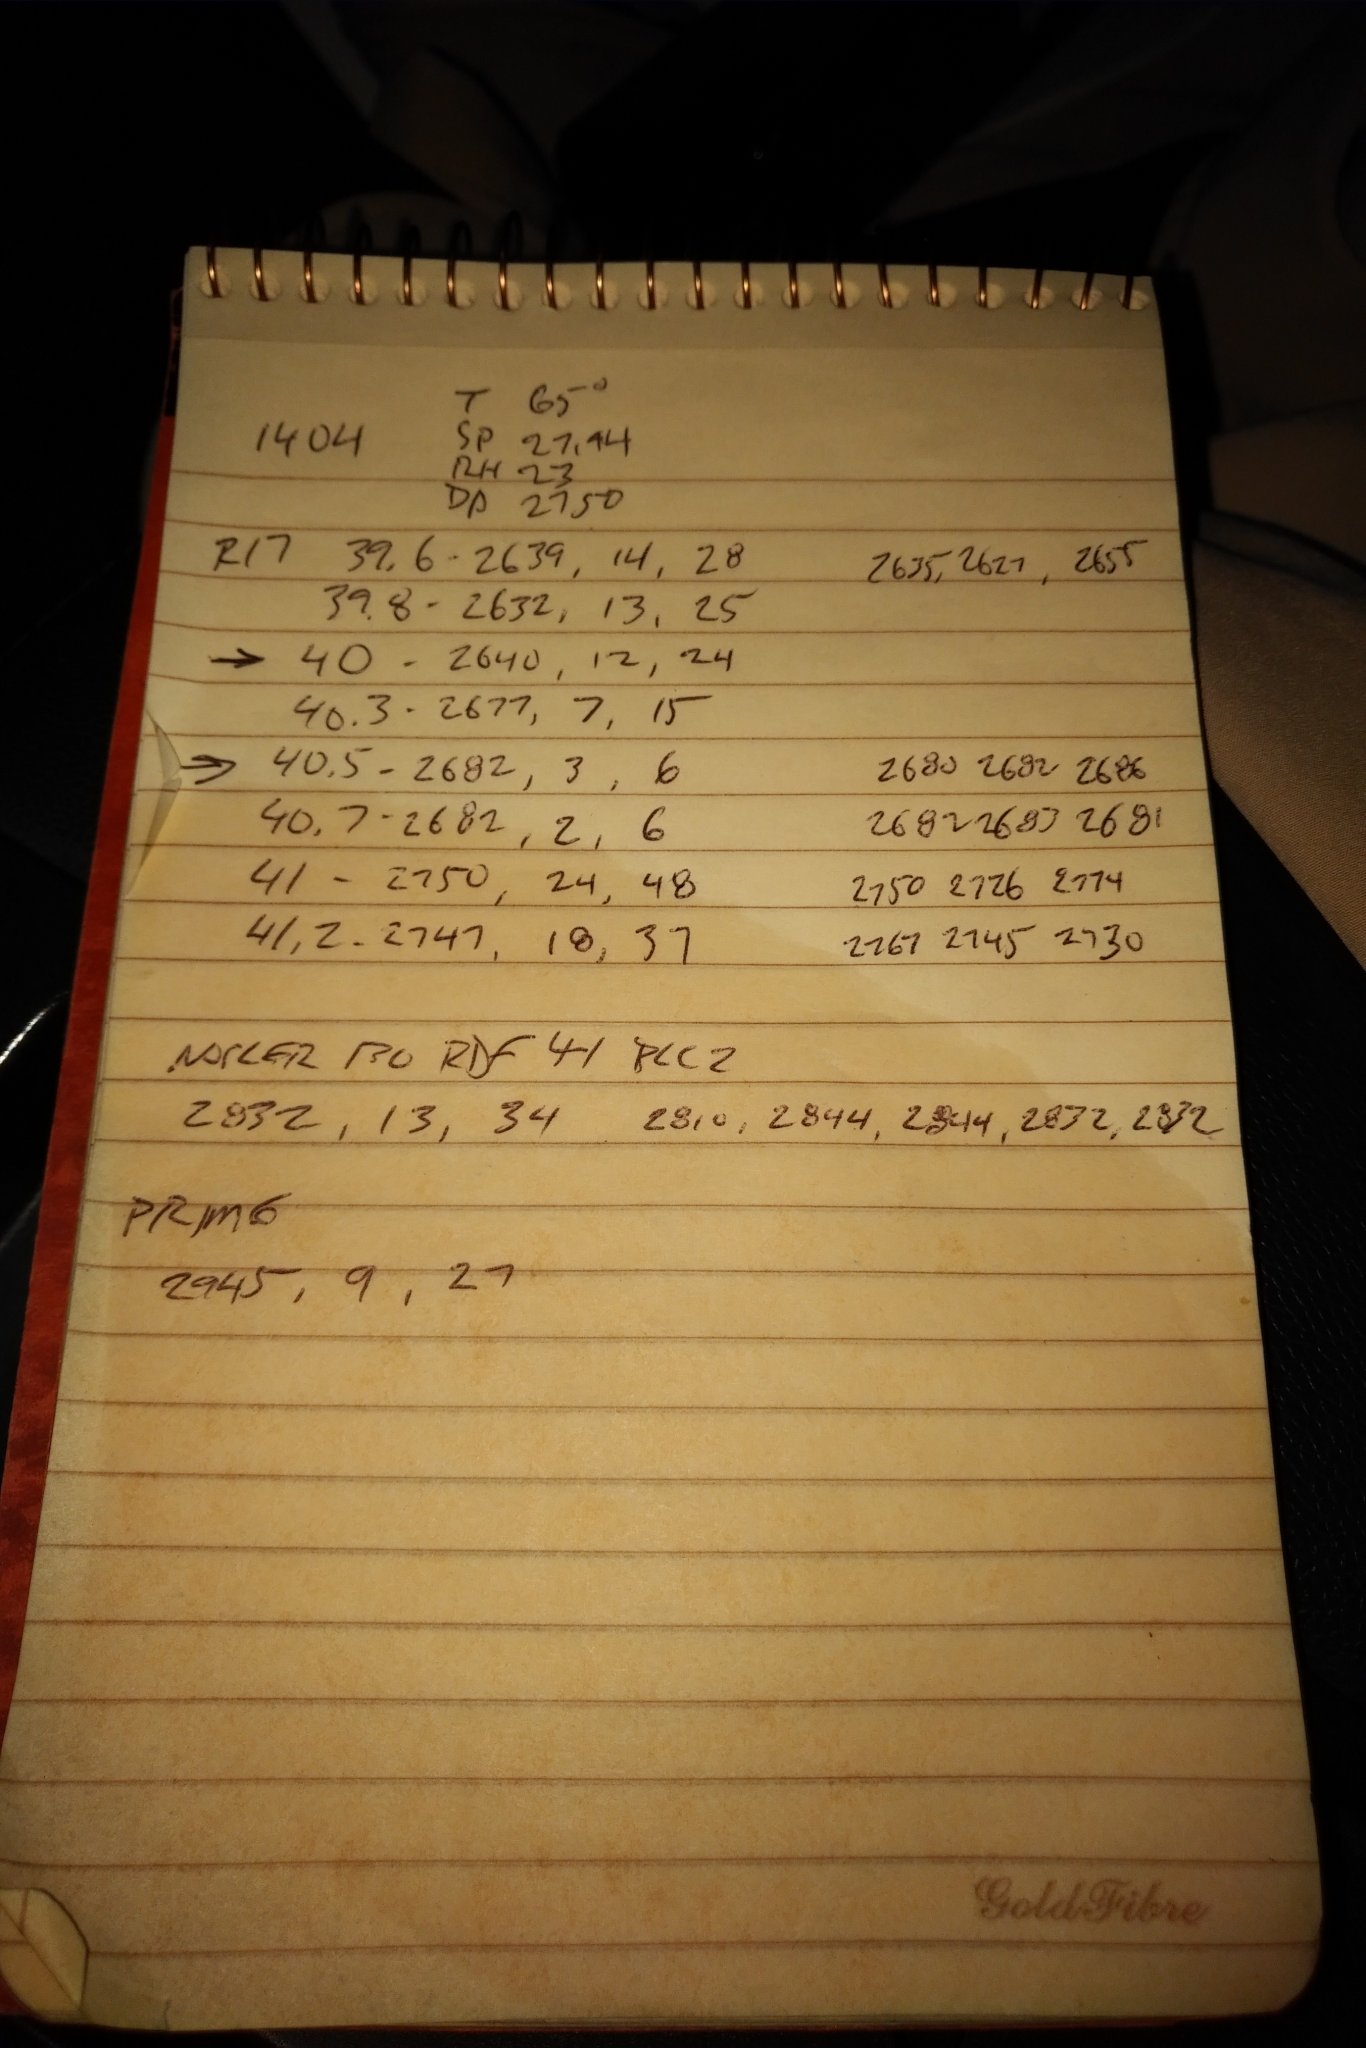 T 65°
1404 SP 27.94
RH 23
DA 2750
R17 39.6 - 2639, 14, 28 2635, 2627, 2655
39.8 - 2632, 13, 25
→ 40 - 2640, 12, 24
40.3 - 2677, 7, 15
→ 40.5 - 2682, 3, 6 2680 2682 2686
40.7 - 2682, 2, 6 2682 2683 2681
41 - 2750, 24, 48 2750 2726 2774
41.2 - 2747, 18, 37 2767 2745 2730
NOSLER 130 RDF 41
2832, 13, 34 2810, 2844, 2844, 2832, 2832
PRIME
2945, 9, 27
GoldFibre